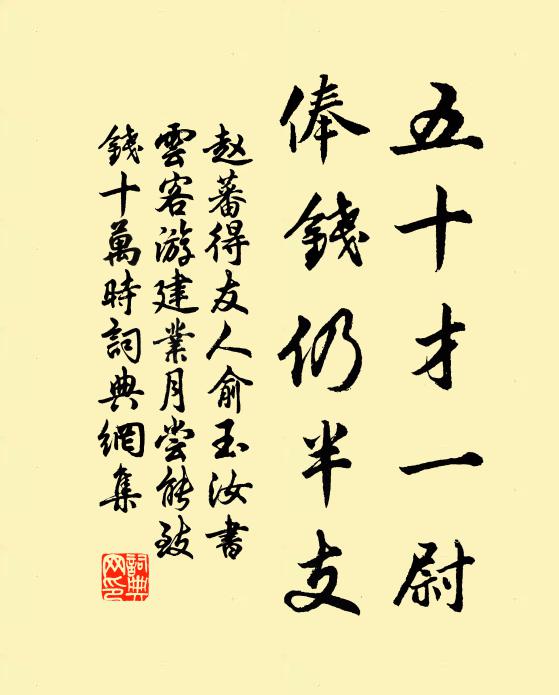 五十才一尉
俸錢仍半支
赵蕃得友人俞玉汝書
雲客游建業月尝能致
錢十萬時詞典網集
詞典网印